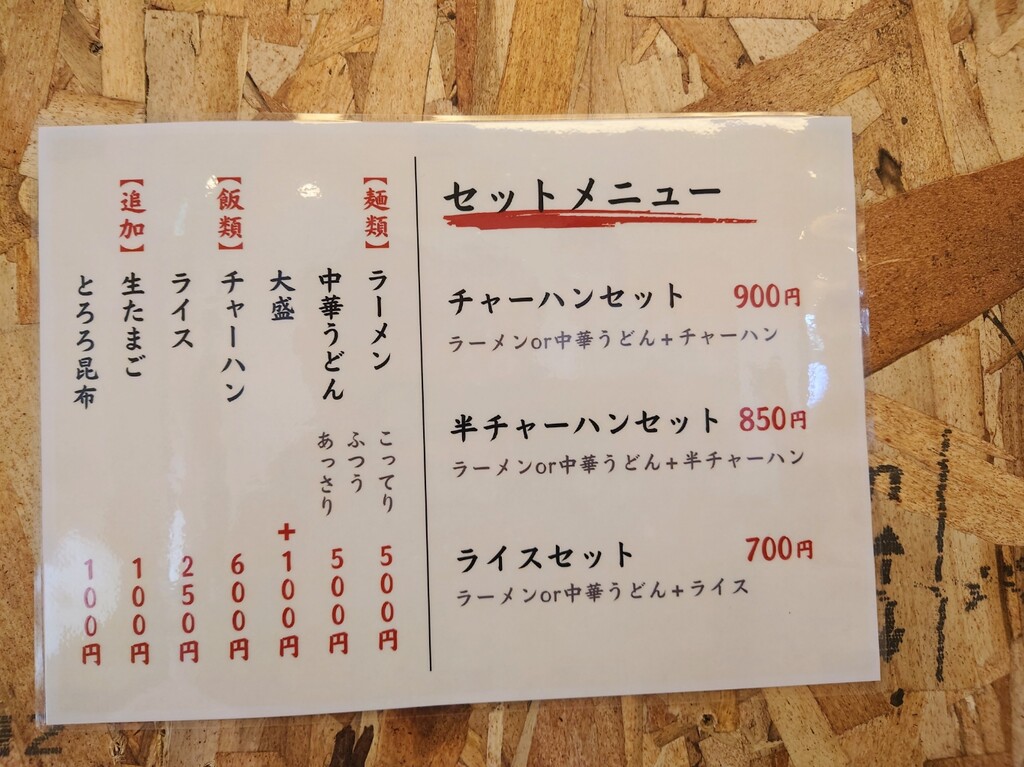 セットメニュー
チャーハンセット 900円
ラーメンor中華うどん+チャーハン
半チャーハンセット 850円
ラーメンor中華うどん+半チャーハン
ライスセット 700円
ラーメンor中華うどん+ライス
【麺類】 ラーメン 500円
こってり
ふつう
あっさり
中華うどん 500円
大盛 +100円
【飯類】 チャーハン 600円
ライス 250円
【追加】 生たまご 100円
とろろ昆布 100円